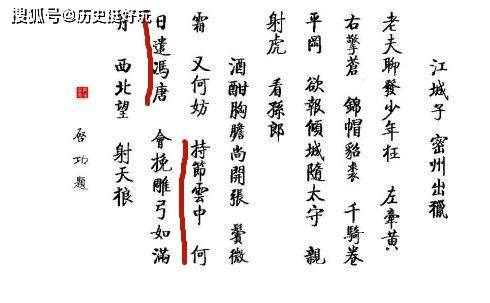 搜狐号@历史挺好玩
江城子 密州出獵
老夫聊發少年狂 左牽黃
右擎蒼 錦帽貂裘 千騎卷
平岡 欲報傾城隨太守 親
射虎 看孫郎
酒酣胸膽尚開張 鬢微
霜 又何妨 持節雲中 何
日遣馮唐 會挽雕弓如滿
月 西北望 射天狼
啓功題